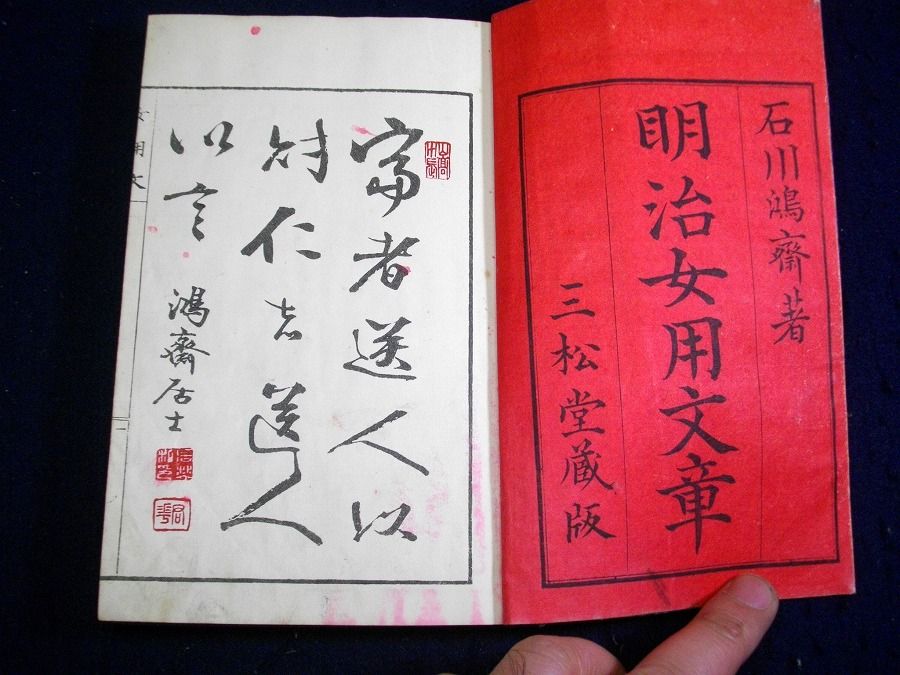 石川鴻齋著
明治女用文章
三松堂蔵版
富者送人以
財仁者送人
以言
鴻齋居士
女用文